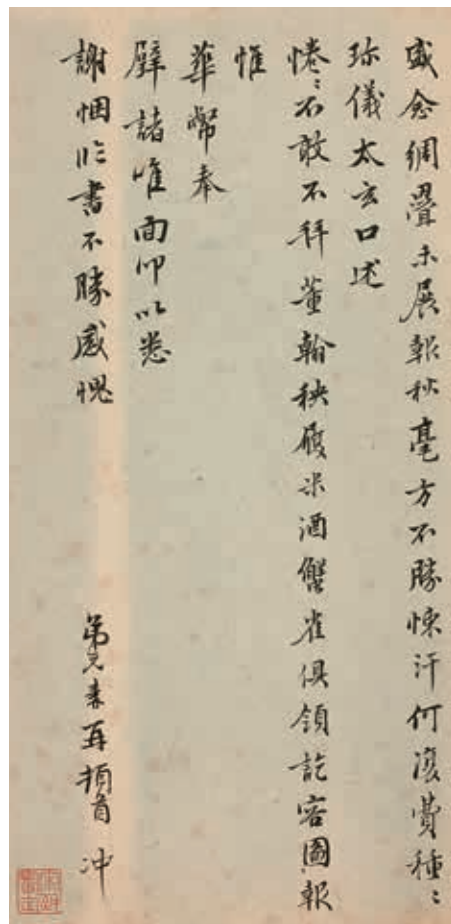 盛念綢疊未展報秋毫方不勝悚汗何復費種〻
珎儀太玄口述
惓〻不敢不拜董翰袂履米酒蟹雀俱領訖容圖報
惟
華幣奉
璧諸惟面叩以悉
謝悃臨書不勝感愧
弟元春再頓首 冲